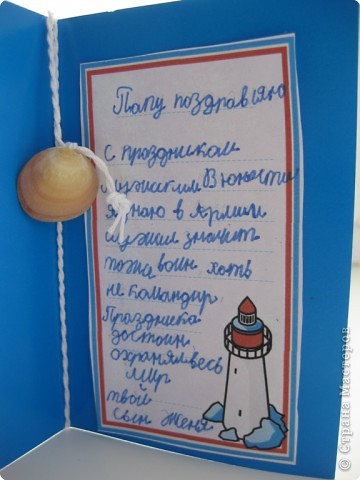 Папу поздравляю
с праздником
мужским В юности
Я знаю в Армии
служил значит
тожа воин хоть
не командир.
Праздника
достоин
охранял весь
мир
твой
сын Женя
© Страна Мастеров